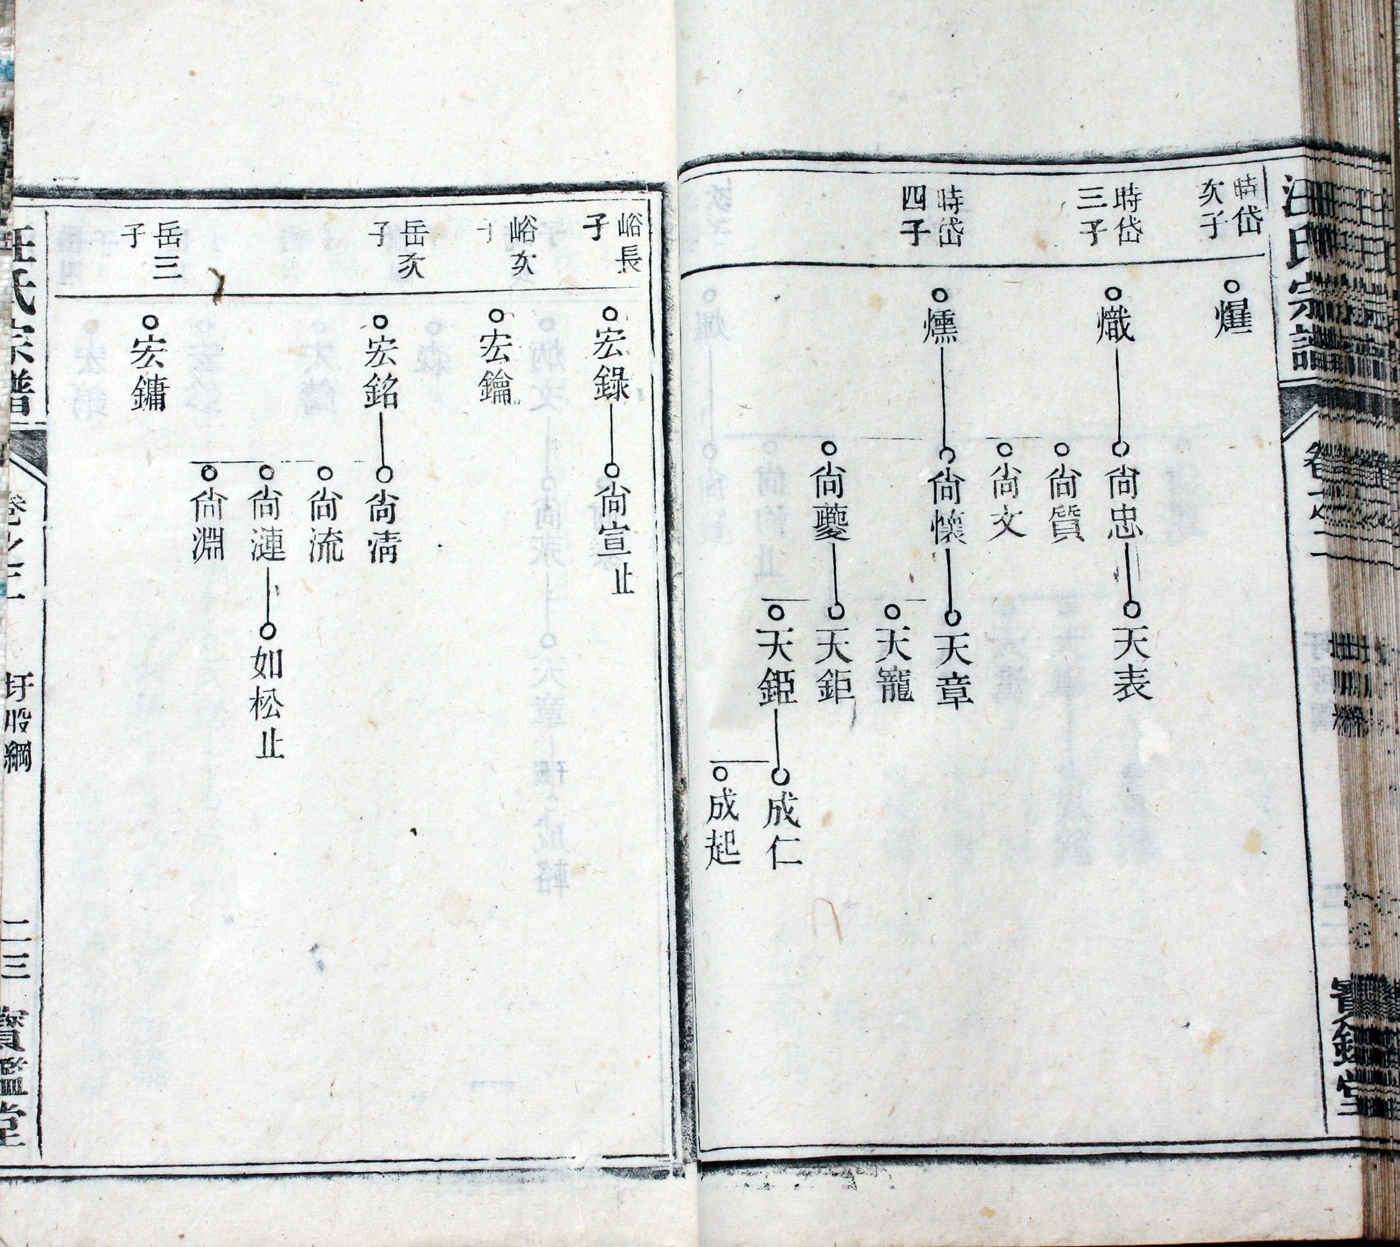 汪氏宗譜
卷之二
寶鑑堂
時岱
次子
燿
時岱
三子
熾
尙忠
天表
尙質
尙文
時岱
四子
燻
尙懷
天章
天寵
尙夔
天鉅
天錏
成仁
成起
峪長
子
宏錄
尙宣止
峪次
子
宏鑰
岳次
子
宏銘
尙淸
尙流
尙漣
如松止
尙淵
岳三
子
宏鏞
汪氏宗譜
卷之二
圩股綱
二三
寶鑑堂